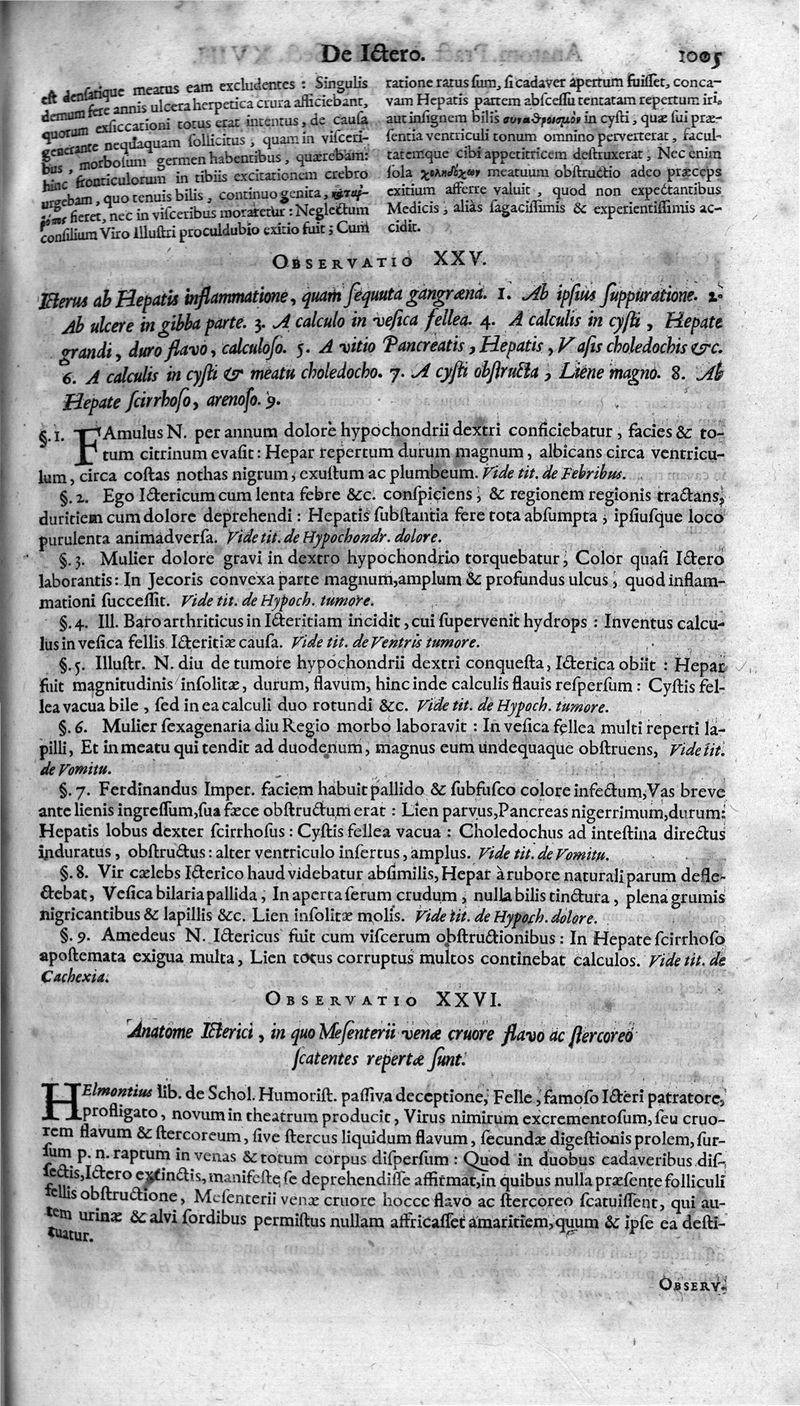 De Ictero.
1005
est densatique meatus eam excludentes : Singulis
demum fere annis ulcera herpetica crura afficiebant,
quorum exsiccationi totus erat intentus, de causa
generante nequaquam sollicitus, quam in visceri-
bus, morbosum germen habentibus, quærebam:
hinc fronticulorum in tibiis excitationem crebro
urgebam, quo tenuis bilis, continuo genita,
fieret, nec in visceribus moraretur : Neglectum
consilium Viro illustri proculdubio exitio fuit ; Cum
ratione ratus sum, si cadaver apertum fuisset, conca-
vam Hepatis partem abscessu tentatam repertum iri,
aut insignem bilis συναθροισμὸν in cysti, quæ sui præ-
sentia ventriculi tonum omnino perverterat, facul-
tatemque cibi appetitricem destruxerat, Nec enim
sola χοληδόχων meatuum obstructio adeo præceps
exitium afferre valuit, quod non expectantibus
Medicis, aliàs sagacissimis & experientissimis ac-
cidit.
OBSERVATIO XXV.
Icterus ab Hepatis inflammatione, quam sequuta gangræna. 1. Ab ipsius suppuratione. 2.
Ab ulcere in gibba parte. 3. A calculo in vesica fellea. 4. A calculis in cysti, Hepate
grandi, duro flavo, calculoso. 5. A vitio Pancreatis, Hepatis, Vasis choledochis &c.
6. A calculis in cysti & meatu choledocho. 7. A cysti obstructa, Liene magno. 8. Ab
Hepate scirrhoso, arenoso. 9.
§. 1. FAmulus N. per annum dolore hypochondrii dextri conficiebatur, facies & to-
tum citrinum evasit : Hepar repertum durum magnum, albicans circa ventricu-
lum, circa costas nothas nigrum, exustum ac plumbeum. Vide tit. de Febribus.
§. 2. Ego Ictericum cum lenta febre &c. conspiciens, & regionem regionis tractans,
duritiem cum dolore deprehendi : Hepatis substantia fere tota absumpta, ipsiusque loco
purulenta animadversa. Vide tit. de Hypochondr. dolore.
§. 3. Mulier dolore gravi in dextro hypochondrio torquebatur, Color quasi Ictero
laborantis : In Jecoris convexa parte magnum, amplum & profundus ulcus, quod inflam-
mationi successit. Vide tit. de Hypoch. tumore.
§. 4. Ill. Baro arthriticus in Icteritiam incidit, cui supervenit hydrops : Inventus calcu-
lus in vesica fellis Icteritiæ causa. Vide tit. de Ventris tumore.
§. 5. Illustr. N. diu de tumore hypochondrii dextri conquesta, Icterica obiit : Hepar
fuit magnitudinis insolitæ, durum, flavum, hinc inde calculis flauis respersum : Cystis fel-
lea vacua bile, sed in ea calculi duo rotundi &c. Vide tit. de Hypoch. tumore.
§. 6. Mulier sexagenaria diu Regio morbo laboravit : In vesica fellea multi reperti la-
pilli, Et in meatu qui tendit ad duodenum, magnus eum undequaque obstruens, Vide tit.
de Vomitu.
§. 7. Ferdinandus Imper. faciem habuit pallido & subfusco colore infectum, Vas breve
ante lienis ingressum, sua fæce obstructum erat : Lien parvus, Pancreas nigerrimum, durum:
Hepatis lobus dexter scirrhosus : Cystis fellea vacua : Choledochus ad intestina directus
induratus, obstructus : alter ventriculo insertus, amplus. Vide tit. de Vomitu.
§. 8. Vir cælebs Icterico haud videbatur absimilis, Hepar à rubore naturali parum defle-
ctebat, Vesica bilaria pallida, In aperta serum crudum, nulla bilis tinctura, plena grumis
nigricantibus & lapillis &c. Lien insolitæ molis. Vide tit. de Hypoch. dolore.
§. 9. Amedeus N. Ictericus fuit cum viscerum obstructionibus : In Hepate scirrhoso
apostemata exigua multa, Lien totus corruptus multos continebat calculos. Vide tit. de
Cachexia.
OBSERVATIO XXVI.
Anatome Icterici, in quo Mesenterii venæ cruore flavo ac stercoreo
scatentes repertæ sunt.
HElmontius lib. de Schol. Humorist. passiva deceptione, Felle, famoso Icteri patratore,
profligato, novum in theatrum producit, Virus nimirum excrementosum, seu cruo-
rem flavum & stercoreum, sive stercus liquidum flavum, secundæ digestionis prolem, sur-
sum p. n. raptum in venas & totum corpus dispersum : Quod in duobus cadaveribus dis-
sectis, Ictero extinctis, manifeste se deprehendisse affirmat, in quibus nulla præsente folliculi
fellis obstructione, Mesenterii venæ cruore hocce flavo ac stercoreo scatuissent, qui au-
tem urinæ & alvi sordibus permistus nullam affricasset amaritiem, quum & ipse ea desti-
tuatur.
OBSERV.